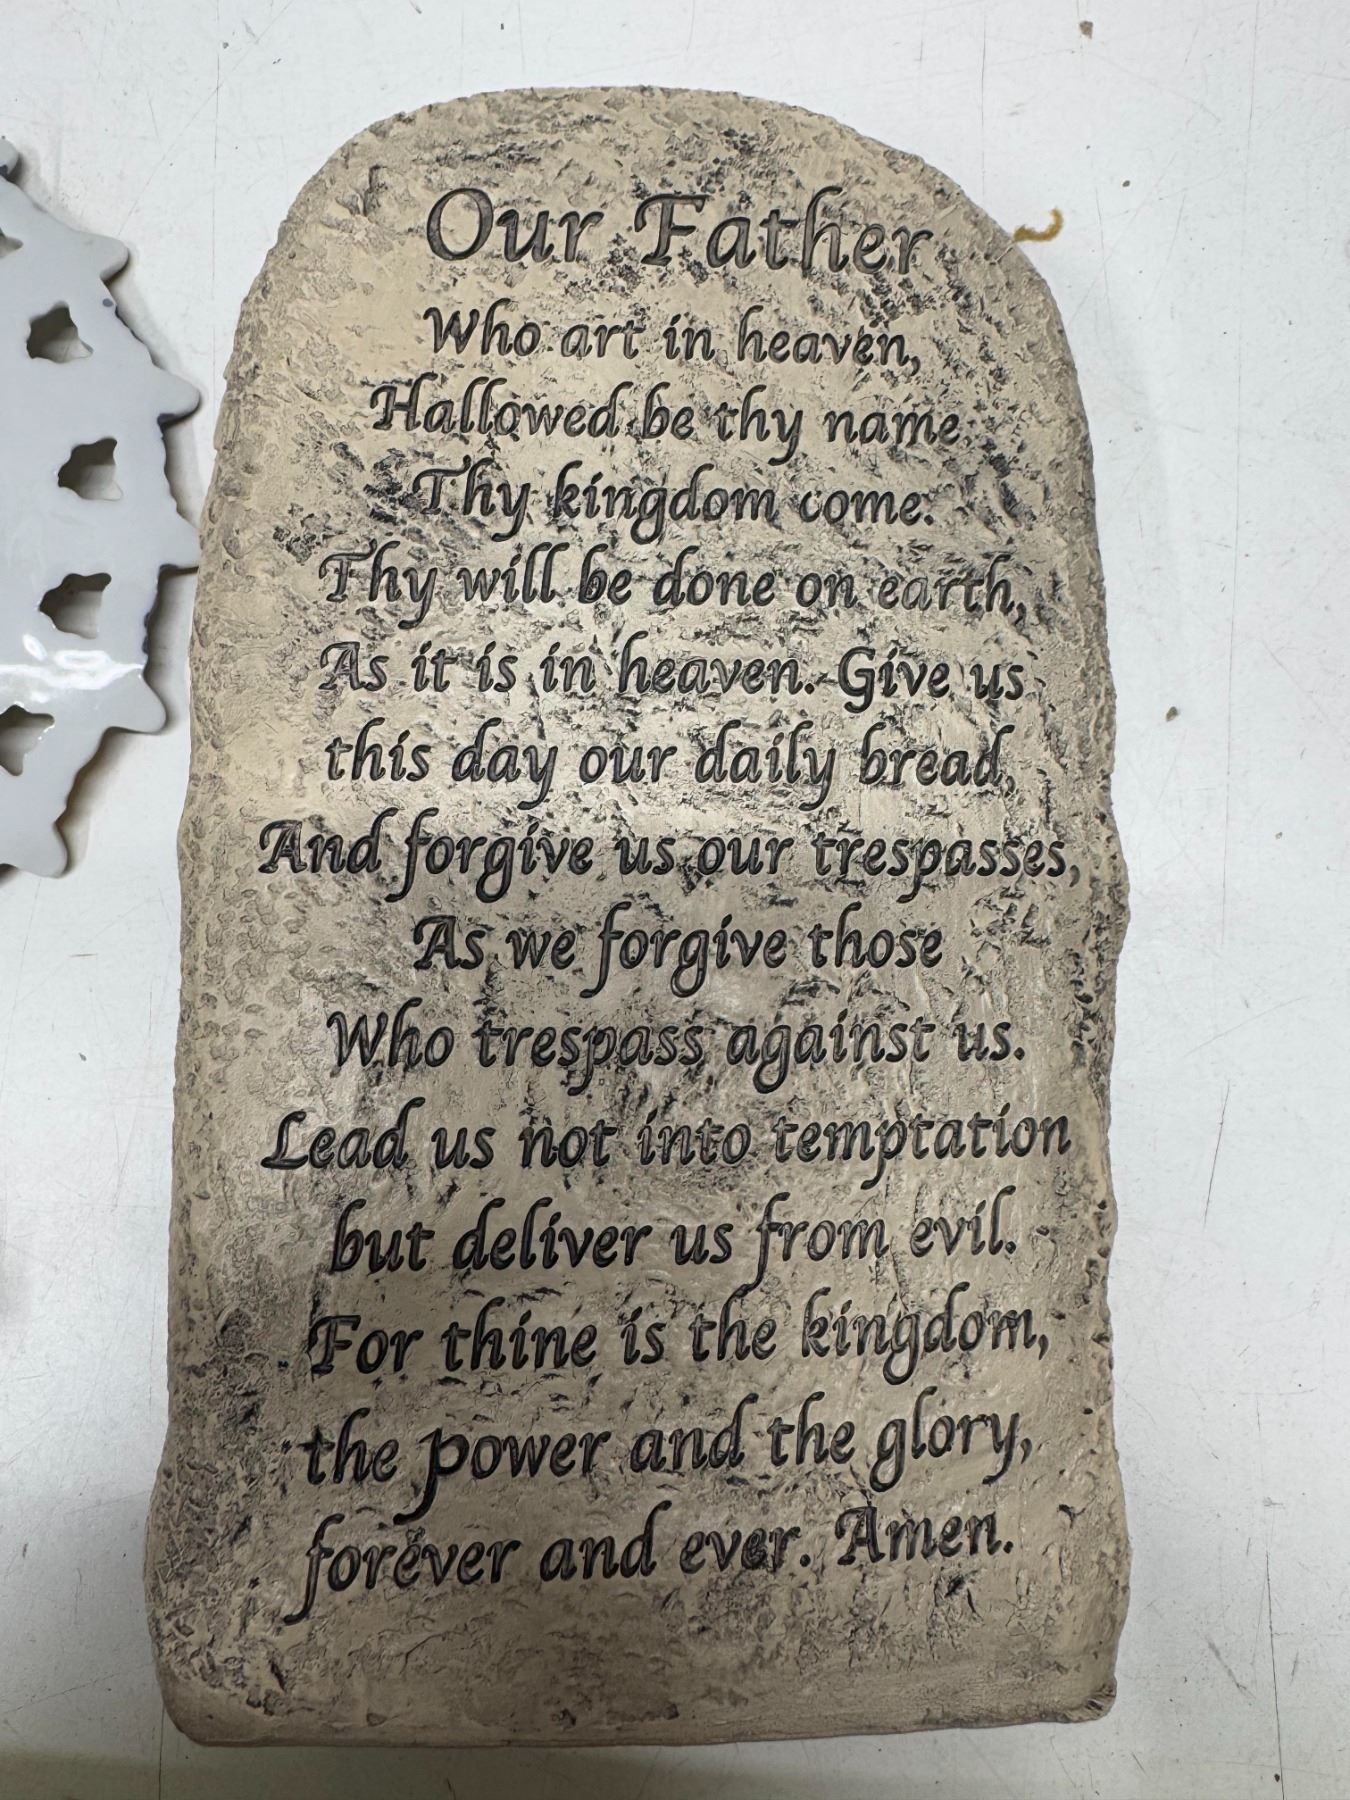 Our Father
Who art in heaven,
Hallowed be thy name.
Thy kingdom come.
Thy will be done on earth,
As it is in heaven. Give us
this day our daily bread,
And forgive us our trespasses,
As we forgive those
Who trespass against us.
Lead us not into temptation
but deliver us from evil.
For thine is the kingdom,
the power and the glory,
forever and ever. Amen.